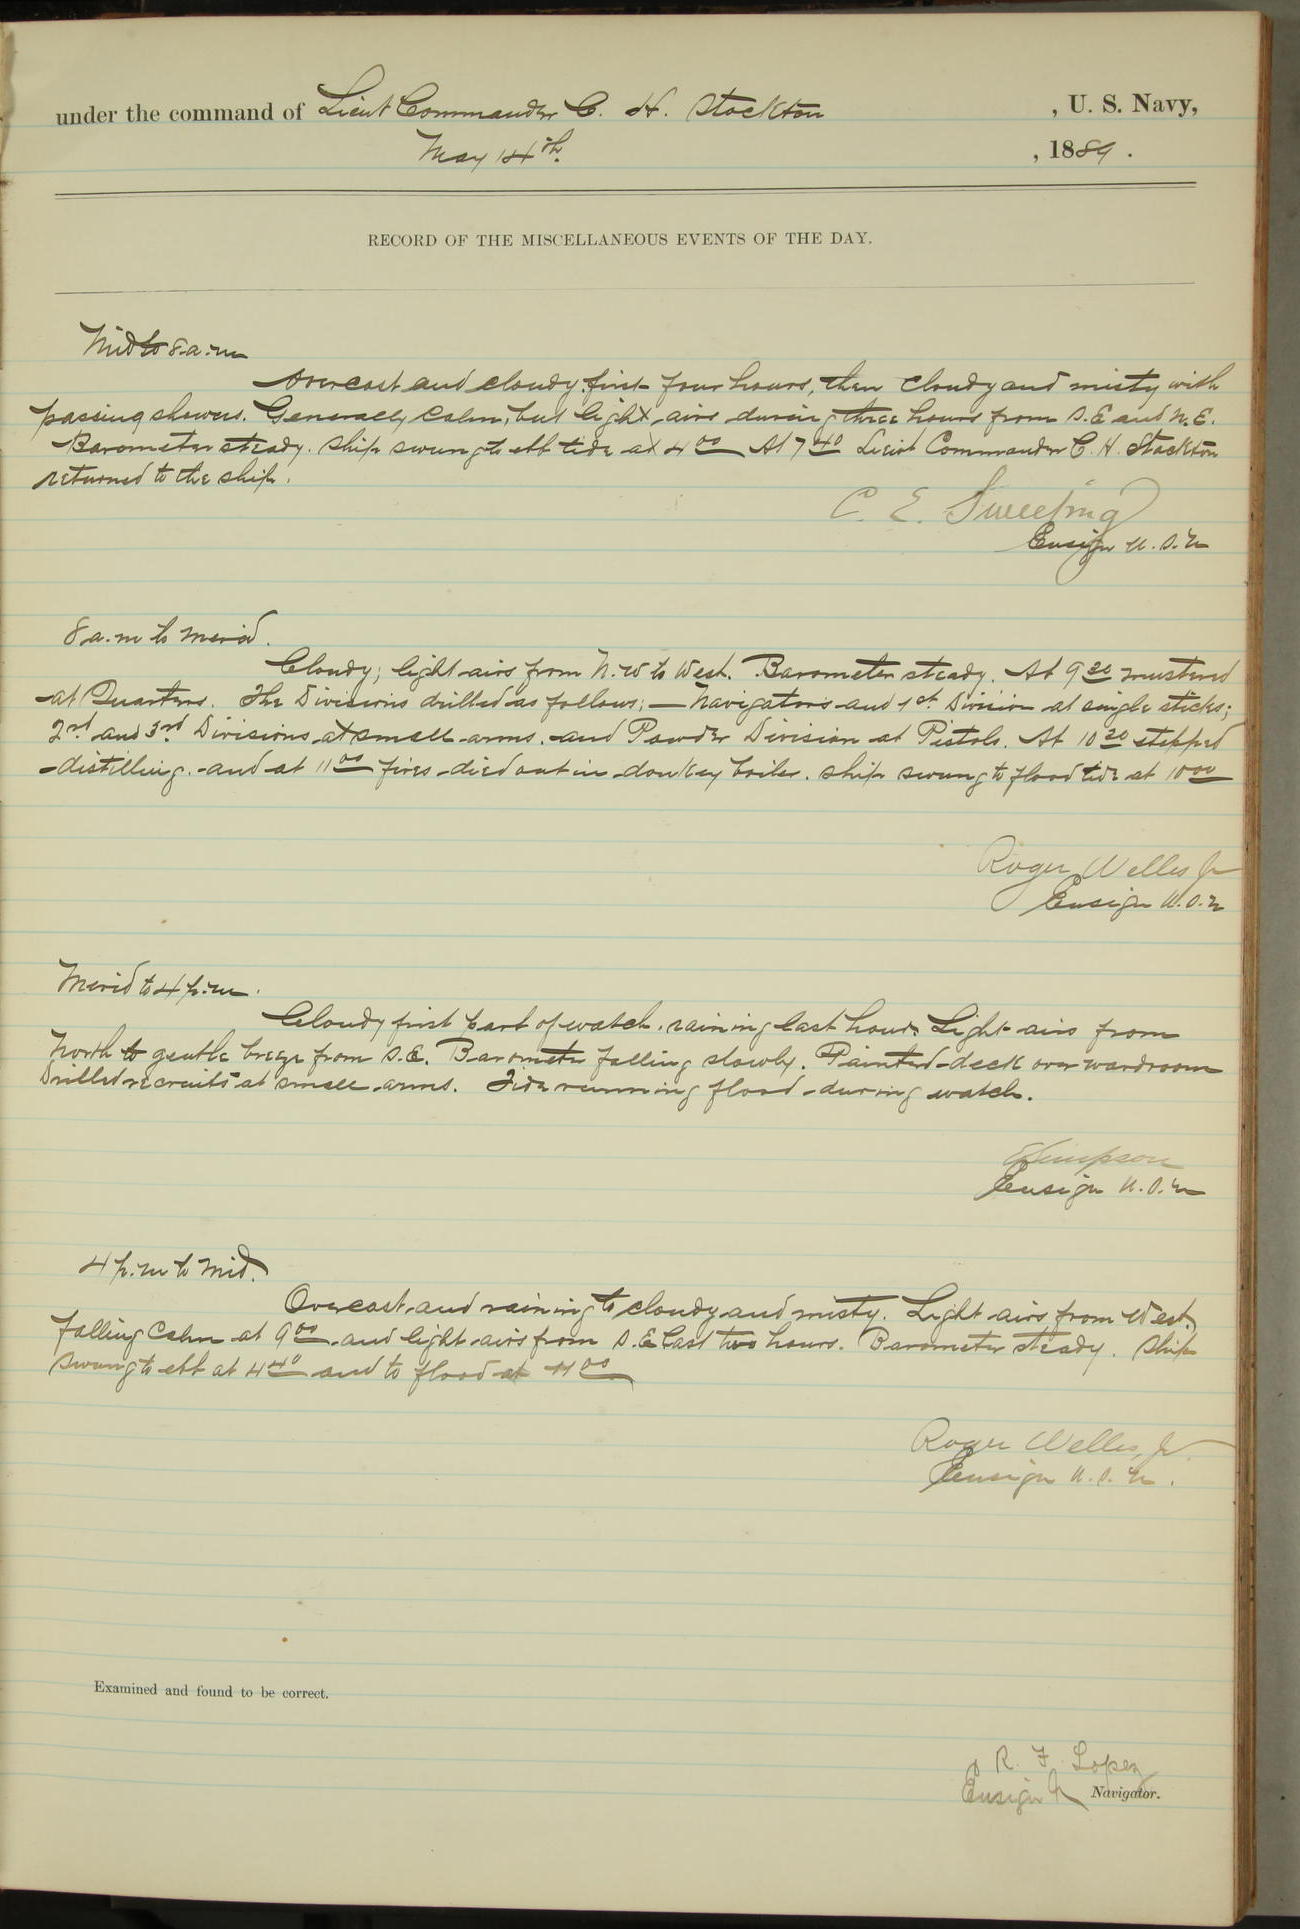 under the command of Lieut Commander C. H. Stockton , U. S. Navy,
May 14th. , 1889 .
RECORD OF THE MISCELLANEOUS EVENTS OF THE DAY.
Mid to 8 a.m
Overcast and cloudy first four hours, then cloudy and misty with
passing showers. Generally calm, but light airs during three hours from S.E and N.E.
Barometer steady. Ship swung to ebb tide at 4 00 At 7 40 Lieut Commander C. H. Stockton
returned to the ship.
C. E. Sweeting
Ensign U.S.N
8 a.m to Merid.
Cloudy; light airs from N.W to West. Barometer steady. At 9 30 mustered
at Quarters. The Divisions drilled as follows; — Navigators and 1st Division at single sticks;
2nd and 3rd Divisions at small arms. and Powder Division at Pistols. At 10 30 stopped
distilling. and at 11 00 fires died out in donkey boiler. Ship swung to flood tide at 10 00
Roger Welles Jr
Ensign U.S.N
Merid to 4 p.m.
Cloudy first part of watch. raining last hour. Light airs from
North to gentle breeze from S.E. Barometer falling slowly. Painted deck over wardroom
Drilled recruits at small arms. Tide running flood during watch.
E Simpson
Ensign U.S.N
4 p.m to Mid.
Overcast and raining to cloudy and misty. Light airs from West,
falling calm at 9 00 and light airs from S.E last two hours. Barometer steady. Ship
swung to ebb at 4 40 and to flood at 11 00
Roger Welles, Jr.
Ensign U.S.N.
Examined and found to be correct.
R. F. Lopez
Ensign Navigator.